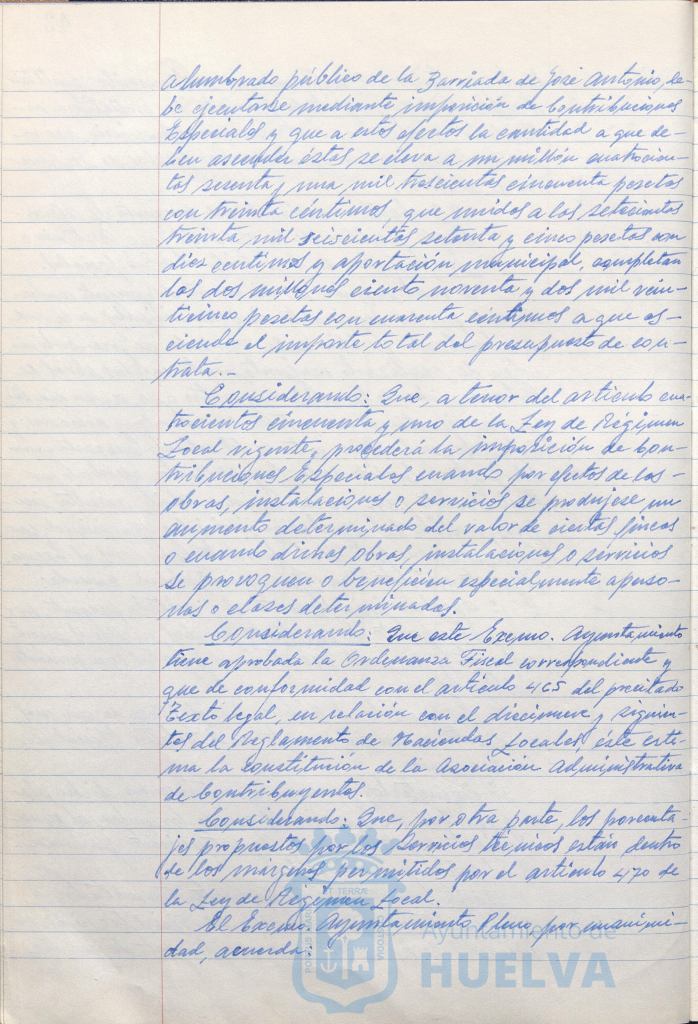 alumbrado público de la Barriada de José Antonio, de-
be ejecutarse mediante imposición de Contribuciones
Especiales y que a estos efectos la cantidad a que de-
ben ascender éstas se eleva a un millón cuatrocien-
tas sesenta y una mil trescientas cincuenta pesetas
con treinta céntimos, que unidos a las setecientas
treinta mil seiscientas setenta y cinco pesetas con
diez centimos y aportación municipal, completan
los dos millones ciento noventa y dos mil vein-
ticinco pesetas con cuarenta centimos a que as-
ciende el importe total del presupuesto de con-
trata.-
Considerando: Que, a tenor del articulo cua-
trocientos cincuenta y uno de la Ley de Régimen
Local vigente, procederá la imposición de Con-
tribuciones Especiales cuando por efectos de las
obras, instalaciones o servicios se produjese un
aumento determinado del valor de ciertas fincas
o cuando dichas obras, instalaciones o servicios
se provoquen o beneficien especialmente a perso-
nas o clases determinadas.
Considerando: Que este Excmo. Ayuntamiento
tiene aprobada la Ordenanza Fiscal correspondiente y
que de conformidad con el artículo 465 del precitado
Texto legal, en relación con el diecinueve y siguien-
tes del Reglamento de Haciendas Locales, éste esti-
ma la constitución de la Asociación Administrativa
de Contribuyentes.
Considerando: Que, por otra parte, los porcenta-
jes propuestos por los Servicios técnicos están dentro
de los márgenes permitidos por el articulo 470 de
la Ley de Régimen Local.
El Excmo. Ayuntamiento Pleno, por unanimi-
dad, acuerda:
Ayuntamiento de
HUELVA
PORTUS MARIS ET TERRÆ CUSTODIA